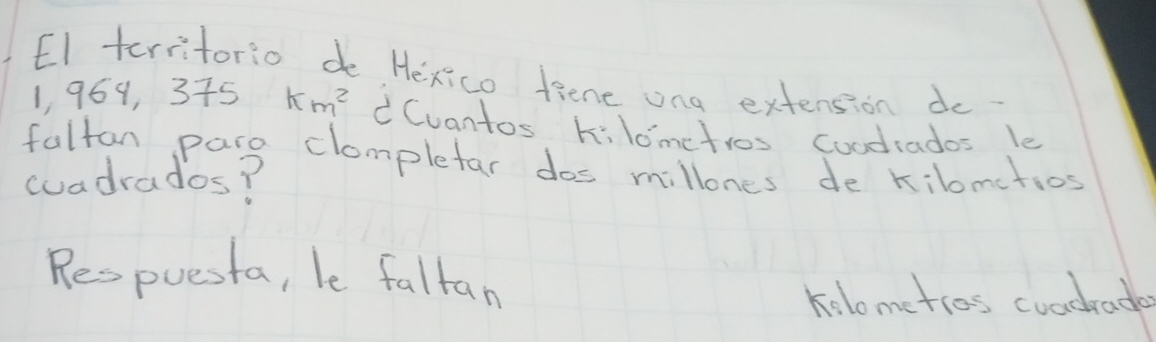 El territorio de México tiene una extensión de
1,964,375 Km² ¿Cuantos Kilómetros cuadrados le
faltan para clompletar dos millones de Kilometros
cuadrados?
Respuesta, le faltan Kilometros cuadrados